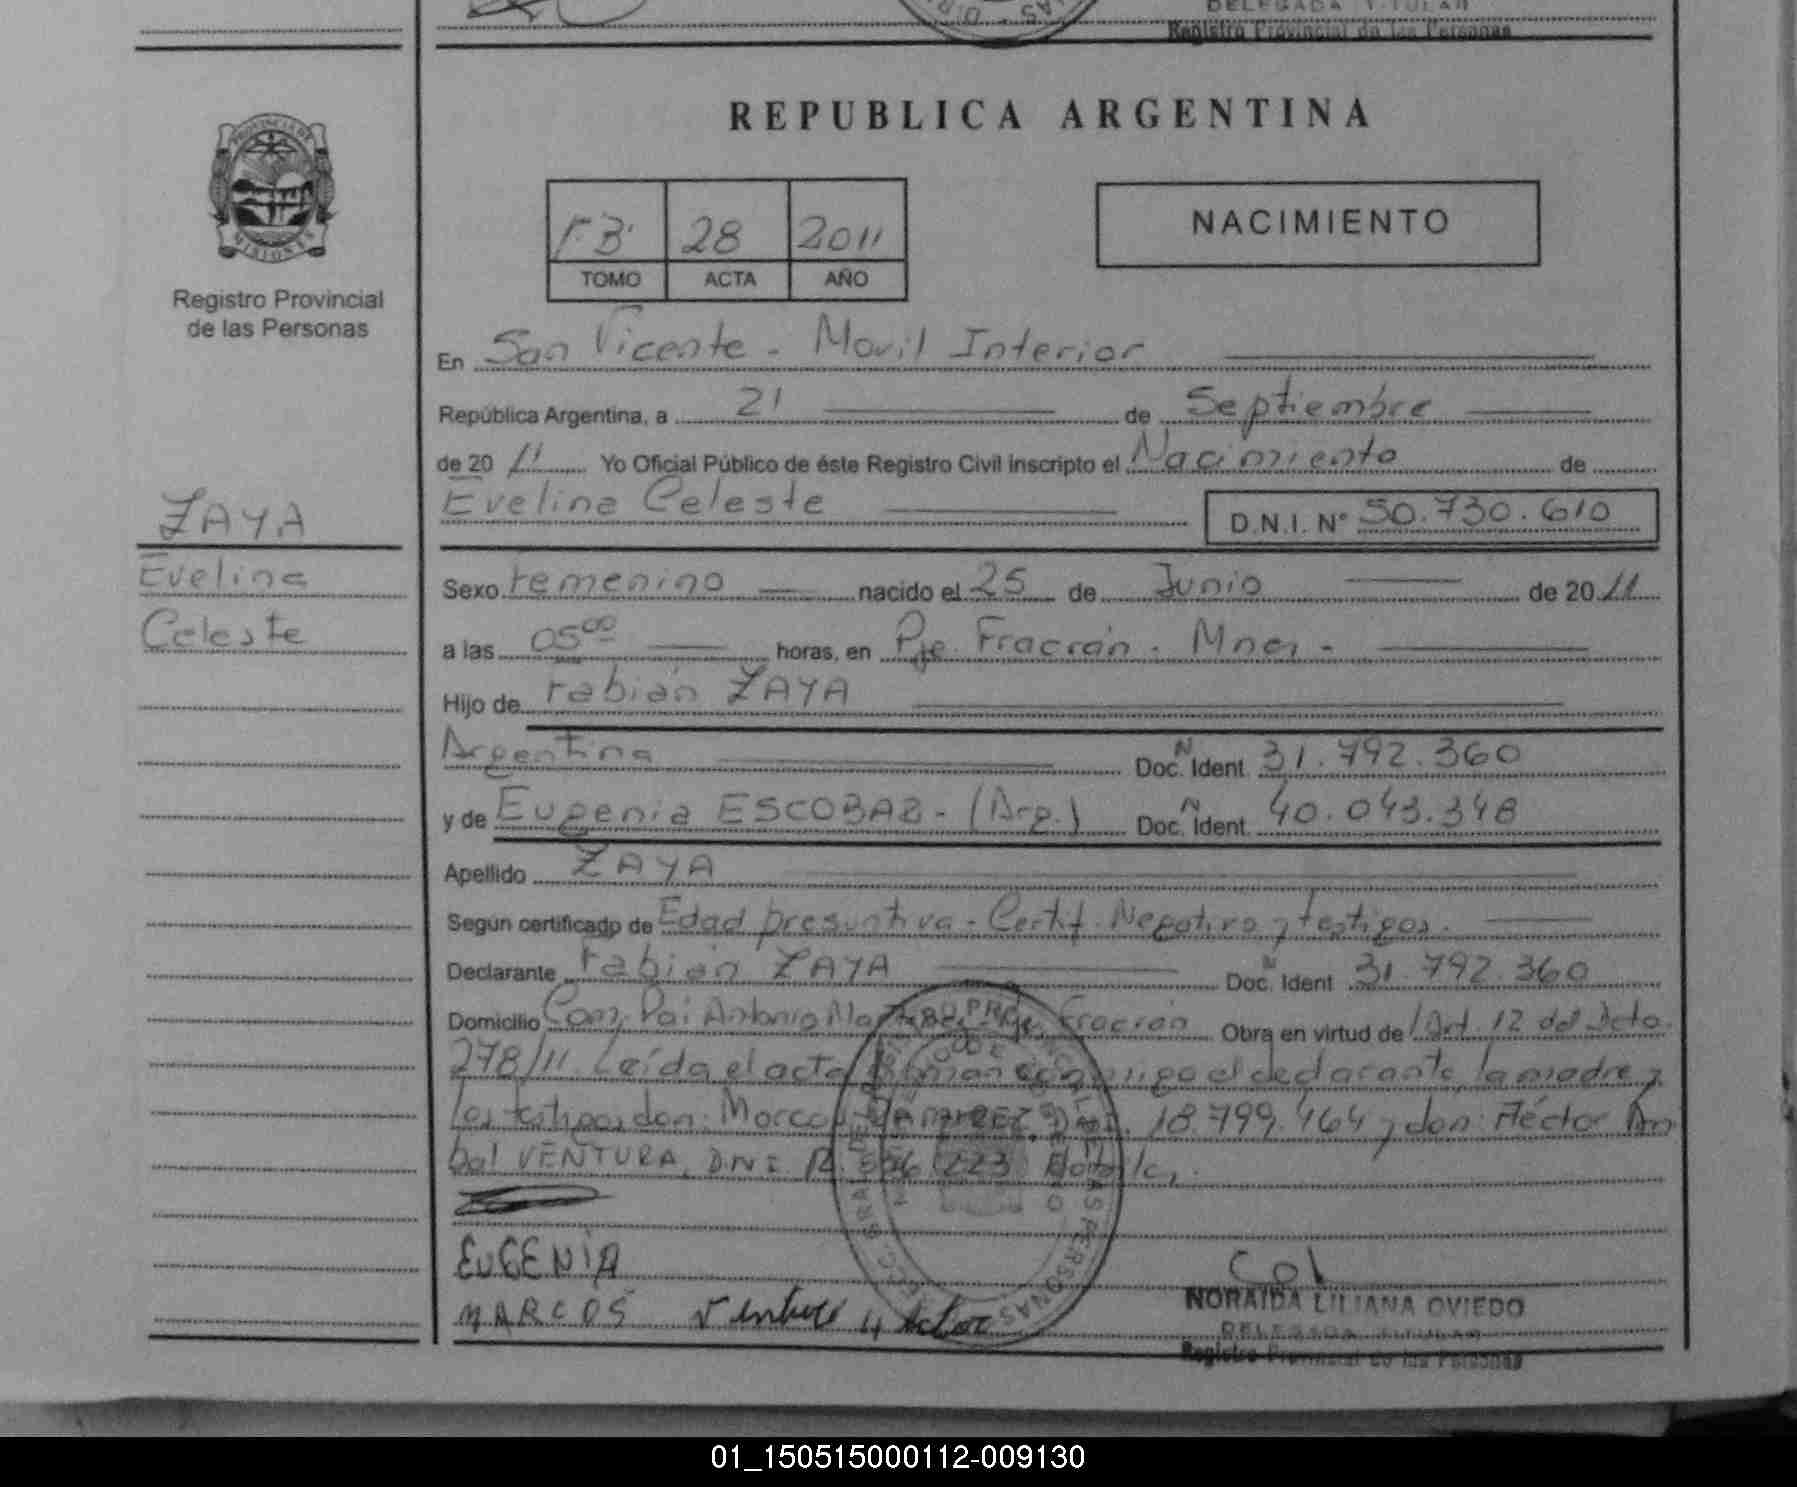 DELEGADA TITULAR
Registro Provincial de las Personas
REPUBLICA ARGENTINA
PROVINCIA DE
MISIONES
28 2011
TOMO ACTA AÑO
NACIMIENTO
Registro Provincial
de las Personas
En San Vicente - Movil Interior
República Argentina, a 21 de Septiembre
de 20 11 Yo Oficial Público de éste Registro Civil inscripto el Nacimiento de
Eveline Celeste
D.N.I. N° 50.730.610
ZAYA
Eveline
Celeste
Sexo Femenino nacido el 25 de Junio de 20 11
a las 05 00 horas, en Pje. Fracrán - Mnes -
Hijo de Fabián ZAYA
Argentina Doc. N Ident. 31.792.360
y de Eugenia ESCOBAR - (Arg.) Doc. N Ident. 40.043.348
Apellido ZAYA
Según certificado de Edad presuntiva - Certif. Negativo y testigos.
Declarante Fabián ZAYA Doc. N Ident. 31.792.360
Domicilio Com. Pai Antonio Pje. Fracrán Obra en virtud de Art. 12 del Dcto.
278/11. Leída el acta firman conmigo el declarante, la madre y
los testigos don: Marcos 18.799.464 y don: Héctor Aní
bal VENTURA, D.N.I.
EUGENIA
MARCOS Venture
NORAIDA LILIANA OVIEDO
DELEGADA TITULAR
Registro Provincial de las Personas
01_150515000112-009130